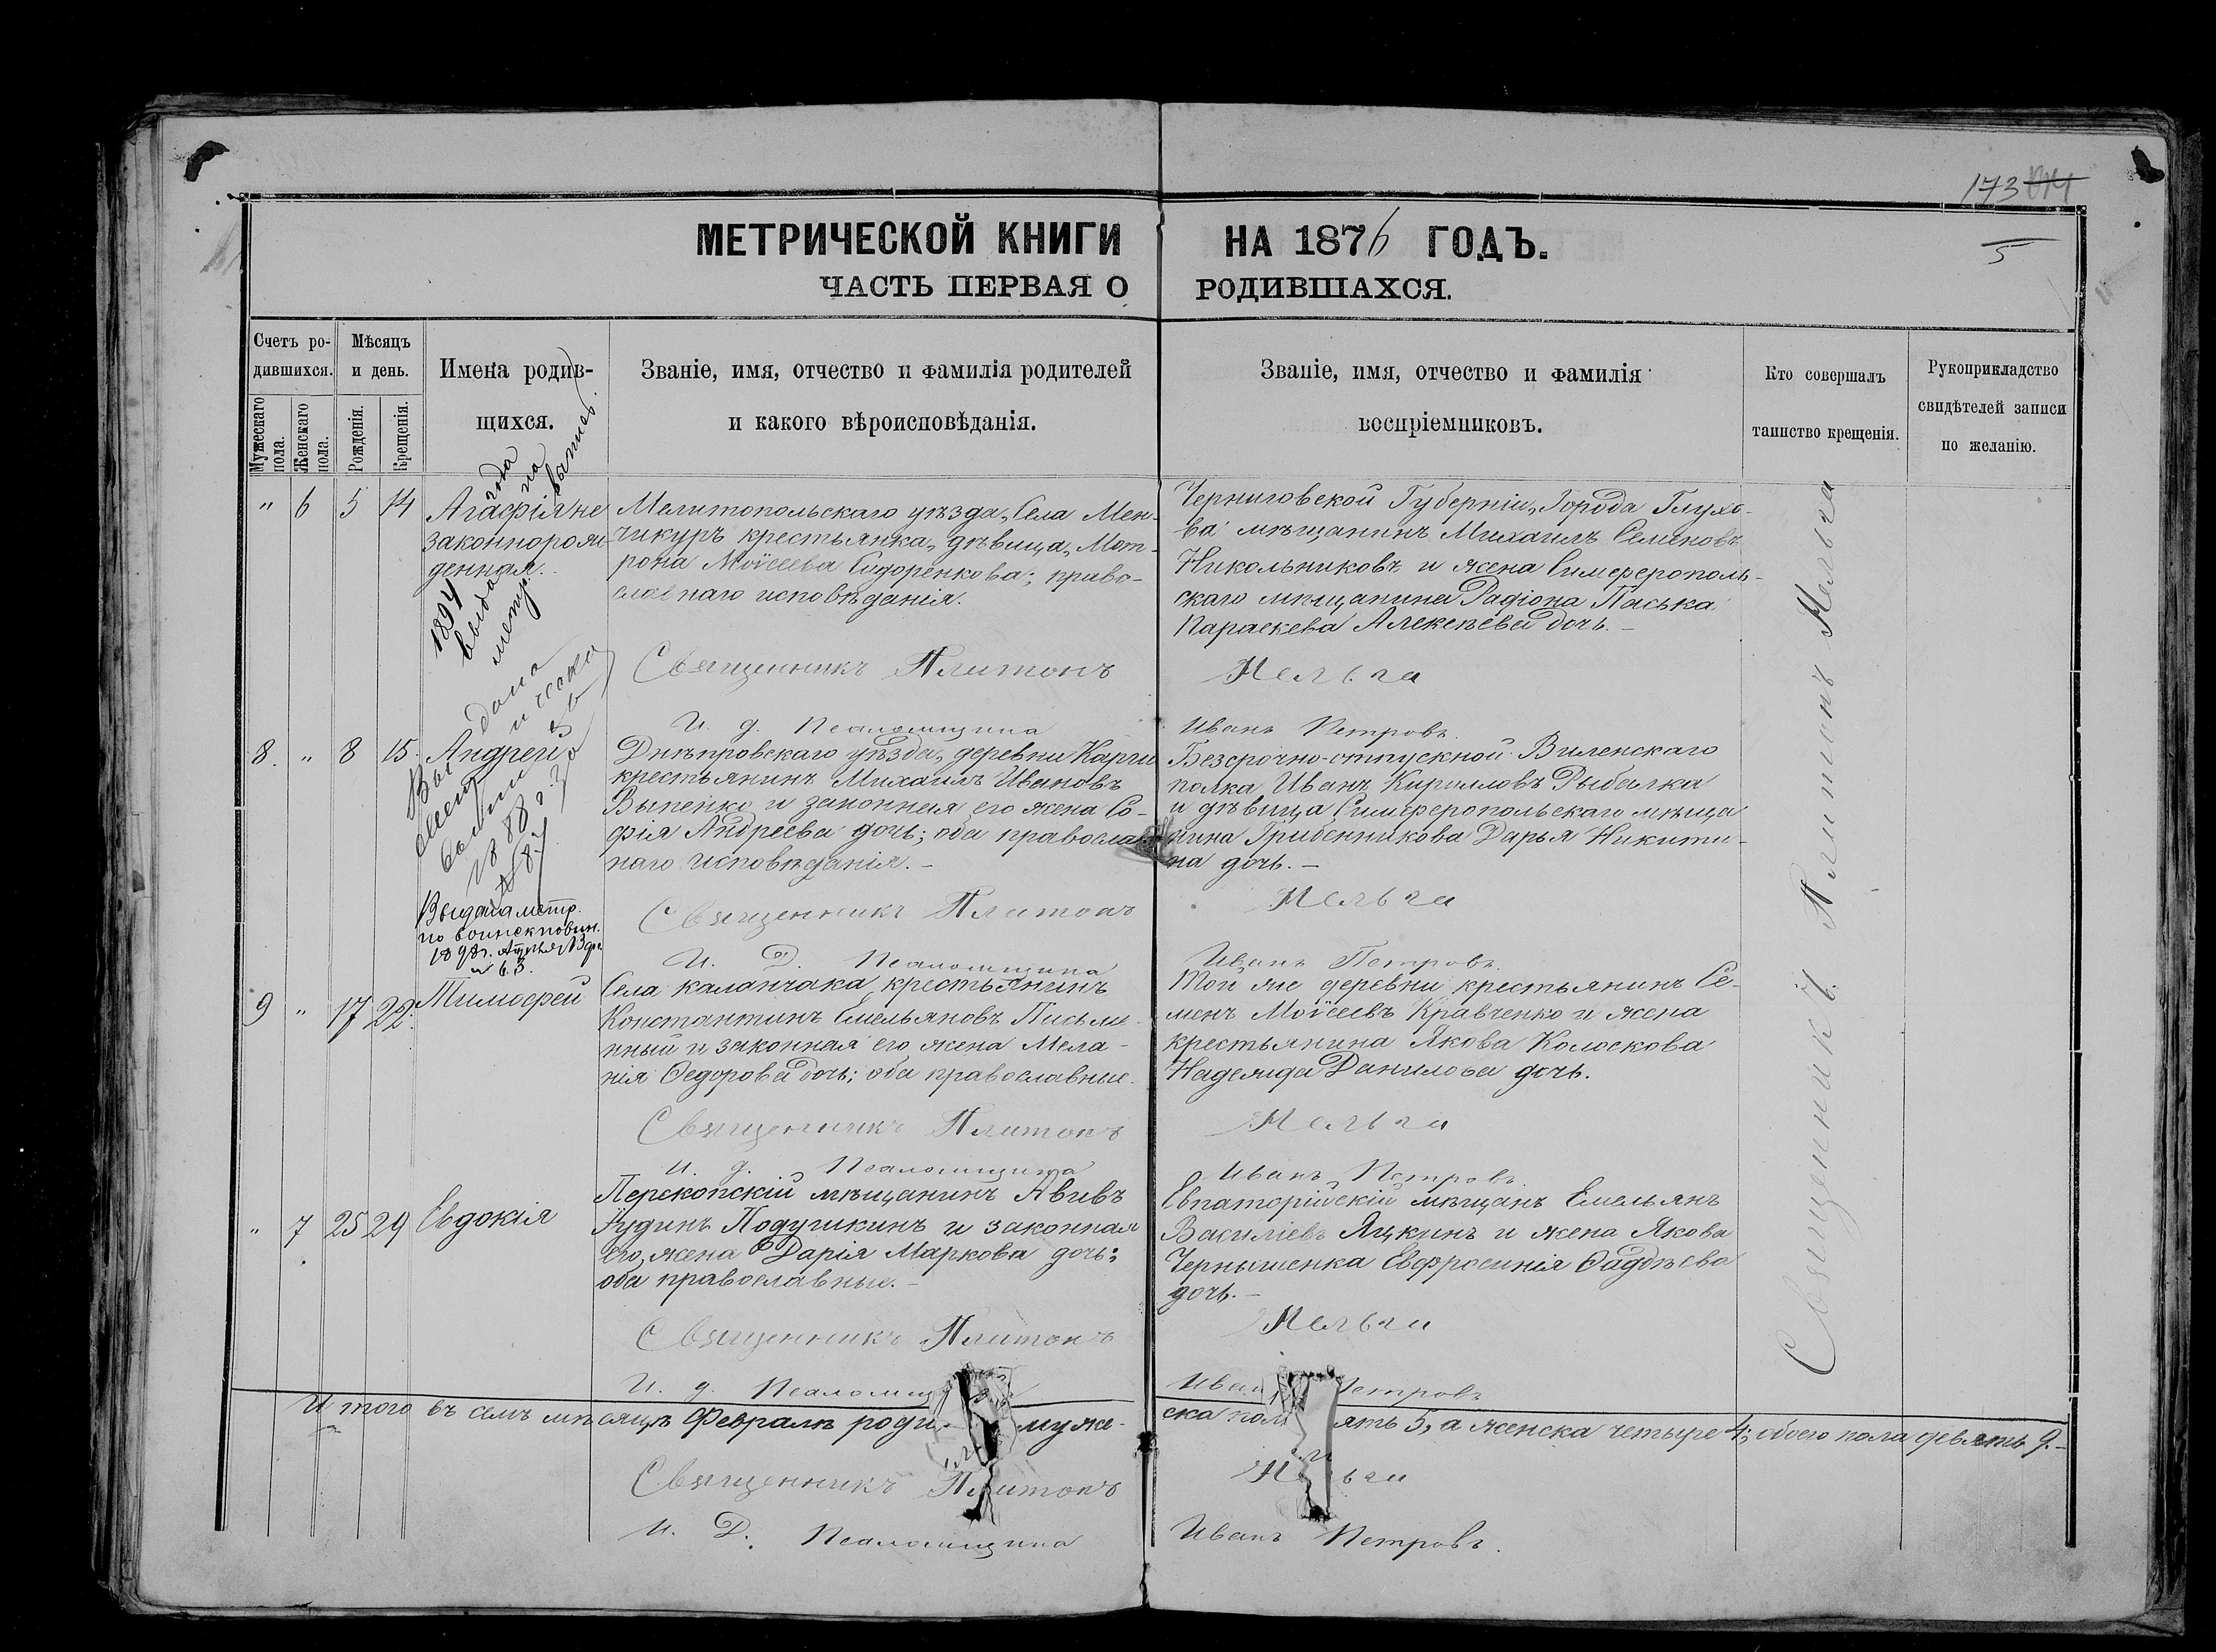 173
5
МЕТРИЧЕСКОЙ КНИГИ НА 1876 ГОДЪ.
ЧАСТЬ ПЕРВАЯ О РОДИВШАХСЯ.
Счетъ ро-
дившихся.
Мужескаго
пола.
Женскаго
пола.
Мѣсяцъ
и день.
Рожденія.
Крещенія.
Имена родив-
щихся.
Званіе, имя, отчество и фамилія родителей
и какого вѣроисповѣданія.
Званіе, имя, отчество и фамилія
воспріемниковъ.
Кто совершалъ
таинство крещенія.
Рукоприкладство
свидѣтелей записи
по желанію.
" 6 5 14
Агафія не
законнорож
денная.
1894 года
выда на
метр. выпись.
Мелитопольскаго уѣзда, Села Мен-
чикуръ крестьянка, дѣвица, Мат-
рона Моѵсеева Сидоренкова; право-
славнаго исповѣданія.
Священникъ Платонъ
И. д. Псаломщика
Черниговской Губерніи, Города Глухо-
ва мѣщанинъ Михаилъ Семеновъ
Никольниковъ и жена Симферополь-
скаго мѣщанина Радіона Паська
Параскева Алексѣева дочь.
Мельга
Иванъ Петровъ.
8. " 8 15.
Андрей
1888 г.
Выдана метр.
по воинск повин.
Днѣпровскаго уѣзда, деревни Карги
крестьянинъ Михаилъ Ивановъ
Выпейко и законная его жена Со-
фія Андреева дочь; оба православ
наго исповѣданія. -
Священникъ Платонъ
И. Д. Псаломщика
Безсрочно-отпускной Виленскаго
полка Иванъ Кирилловъ Рыбалка
и дѣвица Симферопольскаго мѣща
нина Грибенникова Дарья Никити-
на дочь. -
Мельга
Иванъ Петровъ.
9 " 17 22.
Тимофей
Села Каланчака крестьянинъ
Константинъ Емельяновъ Письме-
нный и законная его жена Мела-
нія Ѳедорова дочь; оба православные.
Священникъ Платонъ
И. д. Псаломщика
Той же деревни крестьянинъ Се-
менъ Моѵсеевъ Кравченко и жена
крестьянина Якова Колоскова
Надежда Данилова дочь.
Мельга
Иванъ Петровъ.
" 7 25 29
Евдокія
Перекопскій мѣщанинъ Авивъ
Іудинъ Подушкинъ и законная
его, жена Дарія Маркова дочь;
оба православные. -
Священникъ Платонъ
И. д. Псаломщ
Евпаторійскій мѣщанъ Емельянъ
Василіевъ Яцкинъ и жена Якова
Чернышенка Евфросинія Ѳадѣева
дочь. -
Мельга
Иван Петровъ
Священникъ Платонъ Мельга
И того въ семъ мѣсяцѣ Февралѣ роди муже-
ска пол ять 5, а женска четыре 4; обоего пола девять 9. -
Священникъ Платонъ
М льга
И. Д. Псаломщика
Иванъ Петровъ.